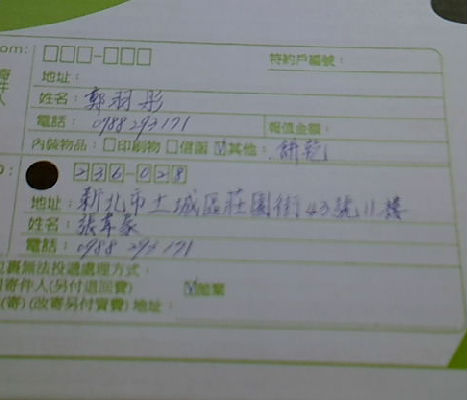 om: □□□-□□□ 特約戶編號：
地址：
姓名：鄭羽彤
電話：0988 293 171 報值金額：
內裝物品：□印刷物 □信函 ☑其他：餅乾
236-028
地址：新北市土城區莊園街43號11樓
姓名：張
電話：0988 293 171
包裹無法投遞處理方式：
寄件人(另付退回費) ☑拋棄
(寄)(改寄另付資費) 地址：